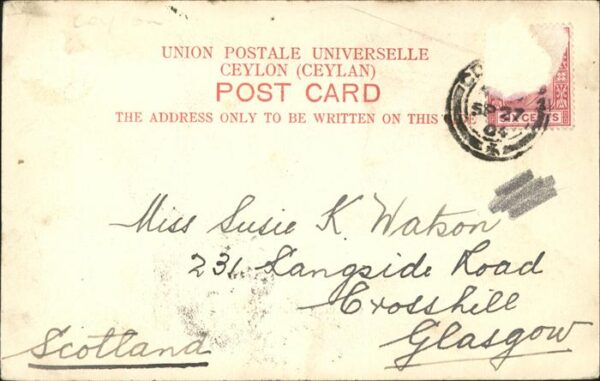 Ceylon
UNION POSTALE UNIVERSELLE
CEYLON (CEYLAN)
POST CARD
THE ADDRESS ONLY TO BE WRITTEN ON THIS
CENTS
SP 27
04
Miss Susie K Watson
231 Langside Road
Crosshill
Glasgow
Scotland